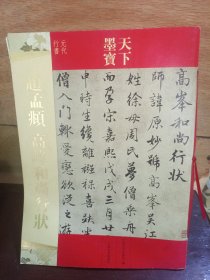 天下
墨寶
元代
行書
趙孟頫 高峯和尚行狀
高峯和尚行状
師諱原妙號高峯吳江
姓徐母周氏夢僧乘舟
而孕宋嘉熙戊戌三月廿
申時生纔離襁褓喜趺坐
僧入門輒愛戀欲從之游